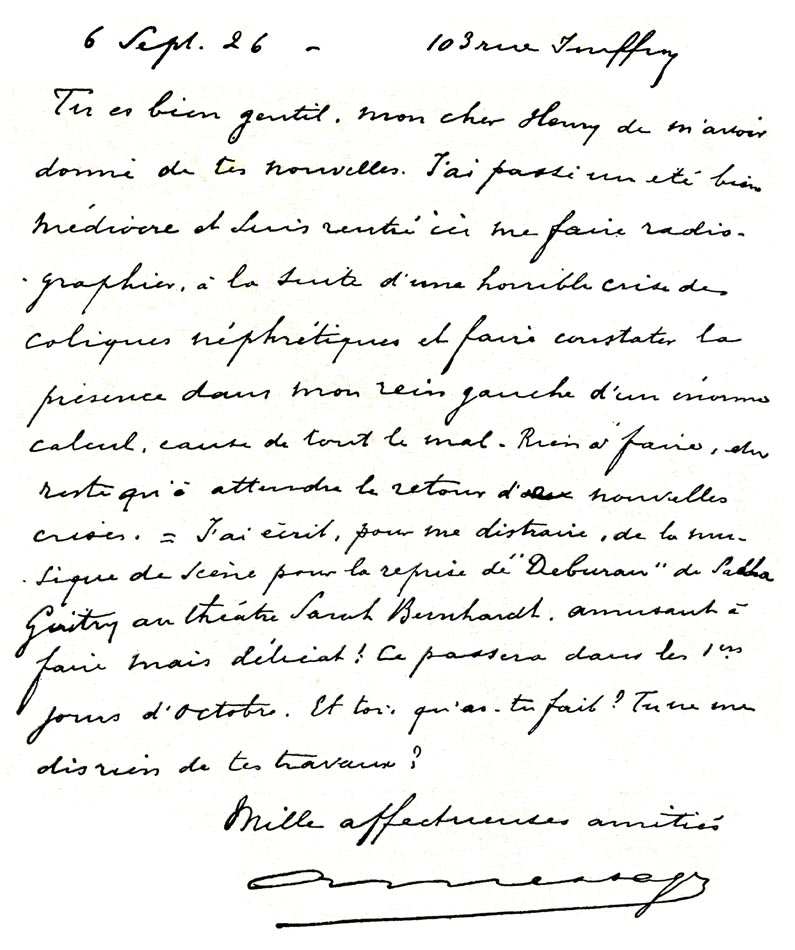 6 Sept. 26 - 103 rue Jouffroy
Tu es bien gentil, mon cher Henry de m'avoir
donné de tes nouvelles. J'ai passé un été bien
médiocre et suis rentré ici me faire radio-
-graphier, à la suite d'une horrible crise de
coliques néphrétiques et faire constater la
présence dans mon rein gauche d'un énorme
calcul, cause de tout le mal - Rien à faire, du
reste qu'à attendre le retour de nouvelles
crises. = J'ai écrit, pour me distraire, de la mu-
-sique de scène pour la reprise de "Deburau" de Sacha
Guitry au théâtre Sarah Bernhardt. amusant à
faire mais délicat! Ce passera dans les 1ers
jours d'Octobre. Et toi, qu'as-tu fait? Tu ne me
dis rien de tes travaux?
Mille affectueuses amitiés
A Messager